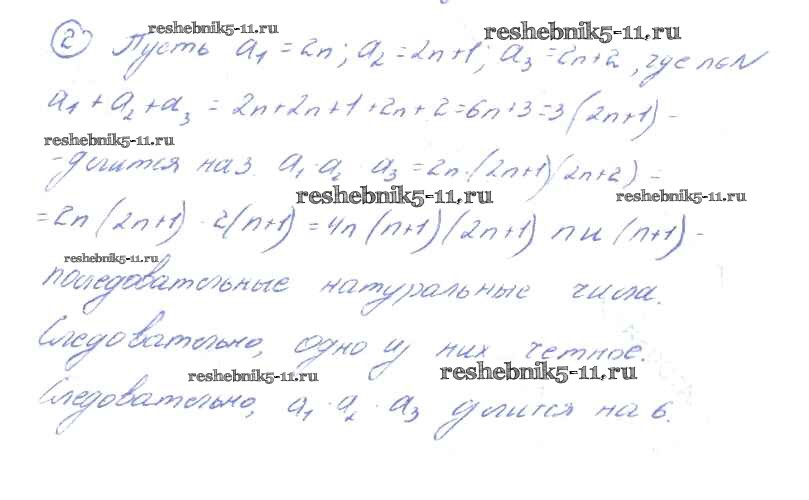 reshebnik5-11.ru reshebnik5-11.ru
② Пусть a₁ = 2n; a₂ = 2n+1; a₃ = 2n+2, где n∈N
a₁ + a₂ + a₃ = 2n+2n+1+2n+2=6n+3=3(2n+1) -
reshebnik5-11.ru
- делится на 3. a₁ · a₂ · a₃ = 2n·(2n+1)(2n+2) =
reshebnik5-11.ru reshebnik5-11.ru
= 2n(2n+1) · 2(n+1) = 4n(n+1)(2n+1) n и (n+1) -
reshebnik5-11.ru
последовательные натуральные числа.
Следовательно, одно из них четное.
reshebnik5-11.ru reshebnik5-11.ru
Следовательно, a₁ · a₂ · a₃ делится на 6.